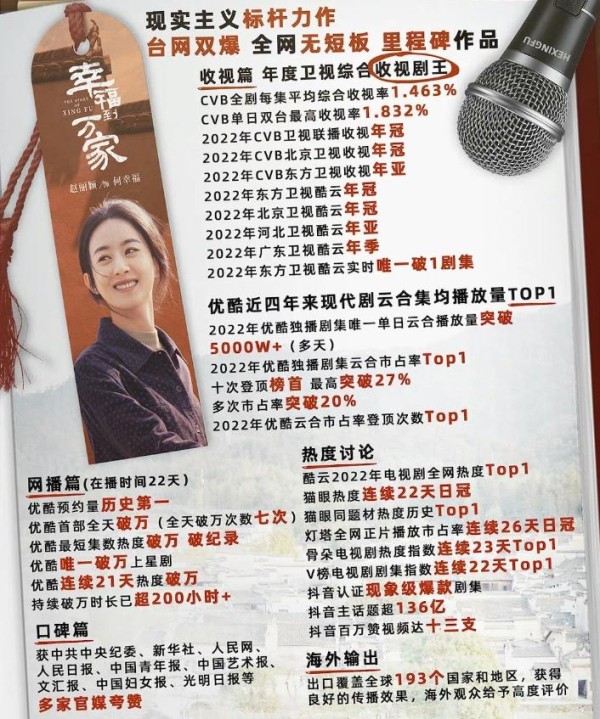 现实主义标杆力作
台网双爆 全网无短板 里程碑作品
HEXINGFU
幸福到万家
THE STORY OF
XING FU
赵丽颖 饰 何幸福
收视篇 年度卫视综合收视剧王
CVB全剧每集平均综合收视率1.463%
CVB单日双台最高收视率1.832%
2022年CVB卫视联播收视年冠
2022年CVB北京卫视收视年冠
2022年CVB东方卫视收视年亚
2022年东方卫视酷云年冠
2022年北京卫视酷云年冠
2022年河北卫视酷云年亚
2022年广东卫视酷云年季
2022年东方卫视酷云实时唯一破1剧集
优酷近四年来现代剧云合集均播放量TOP1
2022年优酷独播剧集唯一单日云合播放量突破
5000W+（多天）
2022年优酷独播剧集云合市占率Top1
十次登顶榜首 最高突破27%
多次市占率突破20%
2022年优酷云合市占率登顶次数Top1
网播篇(在播时间22天)
优酷预约量历史第一
优酷首部全天破万（全天破万次数七次）
优酷最短集数热度破万 破纪录
优酷唯一破万上星剧
优酷连续21天热度破万
持续破万时长已超200小时+
口碑篇
获中共中央纪委、新华社、人民网、
人民日报、中国青年报、中国艺术报、
文汇报、中国妇女报、光明日报等
多家官媒夸赞
热度讨论
酷云2022年电视剧全网热度Top1
猫眼热度连续22天日冠
猫眼同题材热度历史Top1
灯塔全网正片播放市占率连续26天日冠
骨朵电视剧热度指数连续23天Top1
V榜电视剧剧集指数连续22天Top1
抖音认证现象级爆款剧集
抖音主话题超136亿
抖音百万赞视频达十三支
海外输出
出口覆盖全球193个国家和地区，获得
良好的传播效果，海外观众给予高度评价